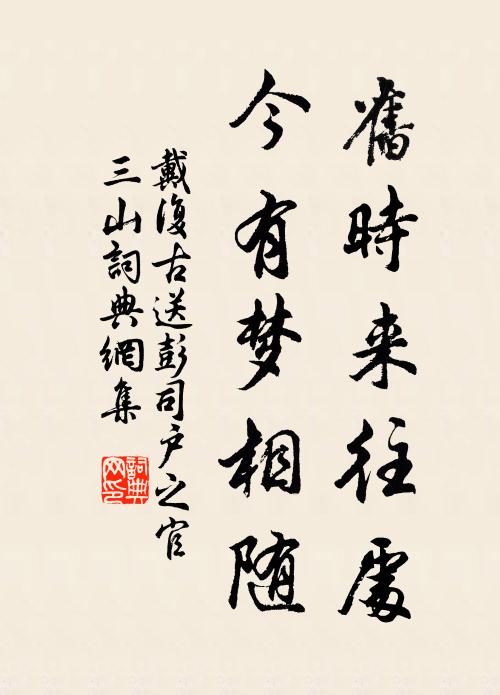 舊時来往處
今有梦相随
戴復古送彭司户之官
三山詞典網集
詞典网印